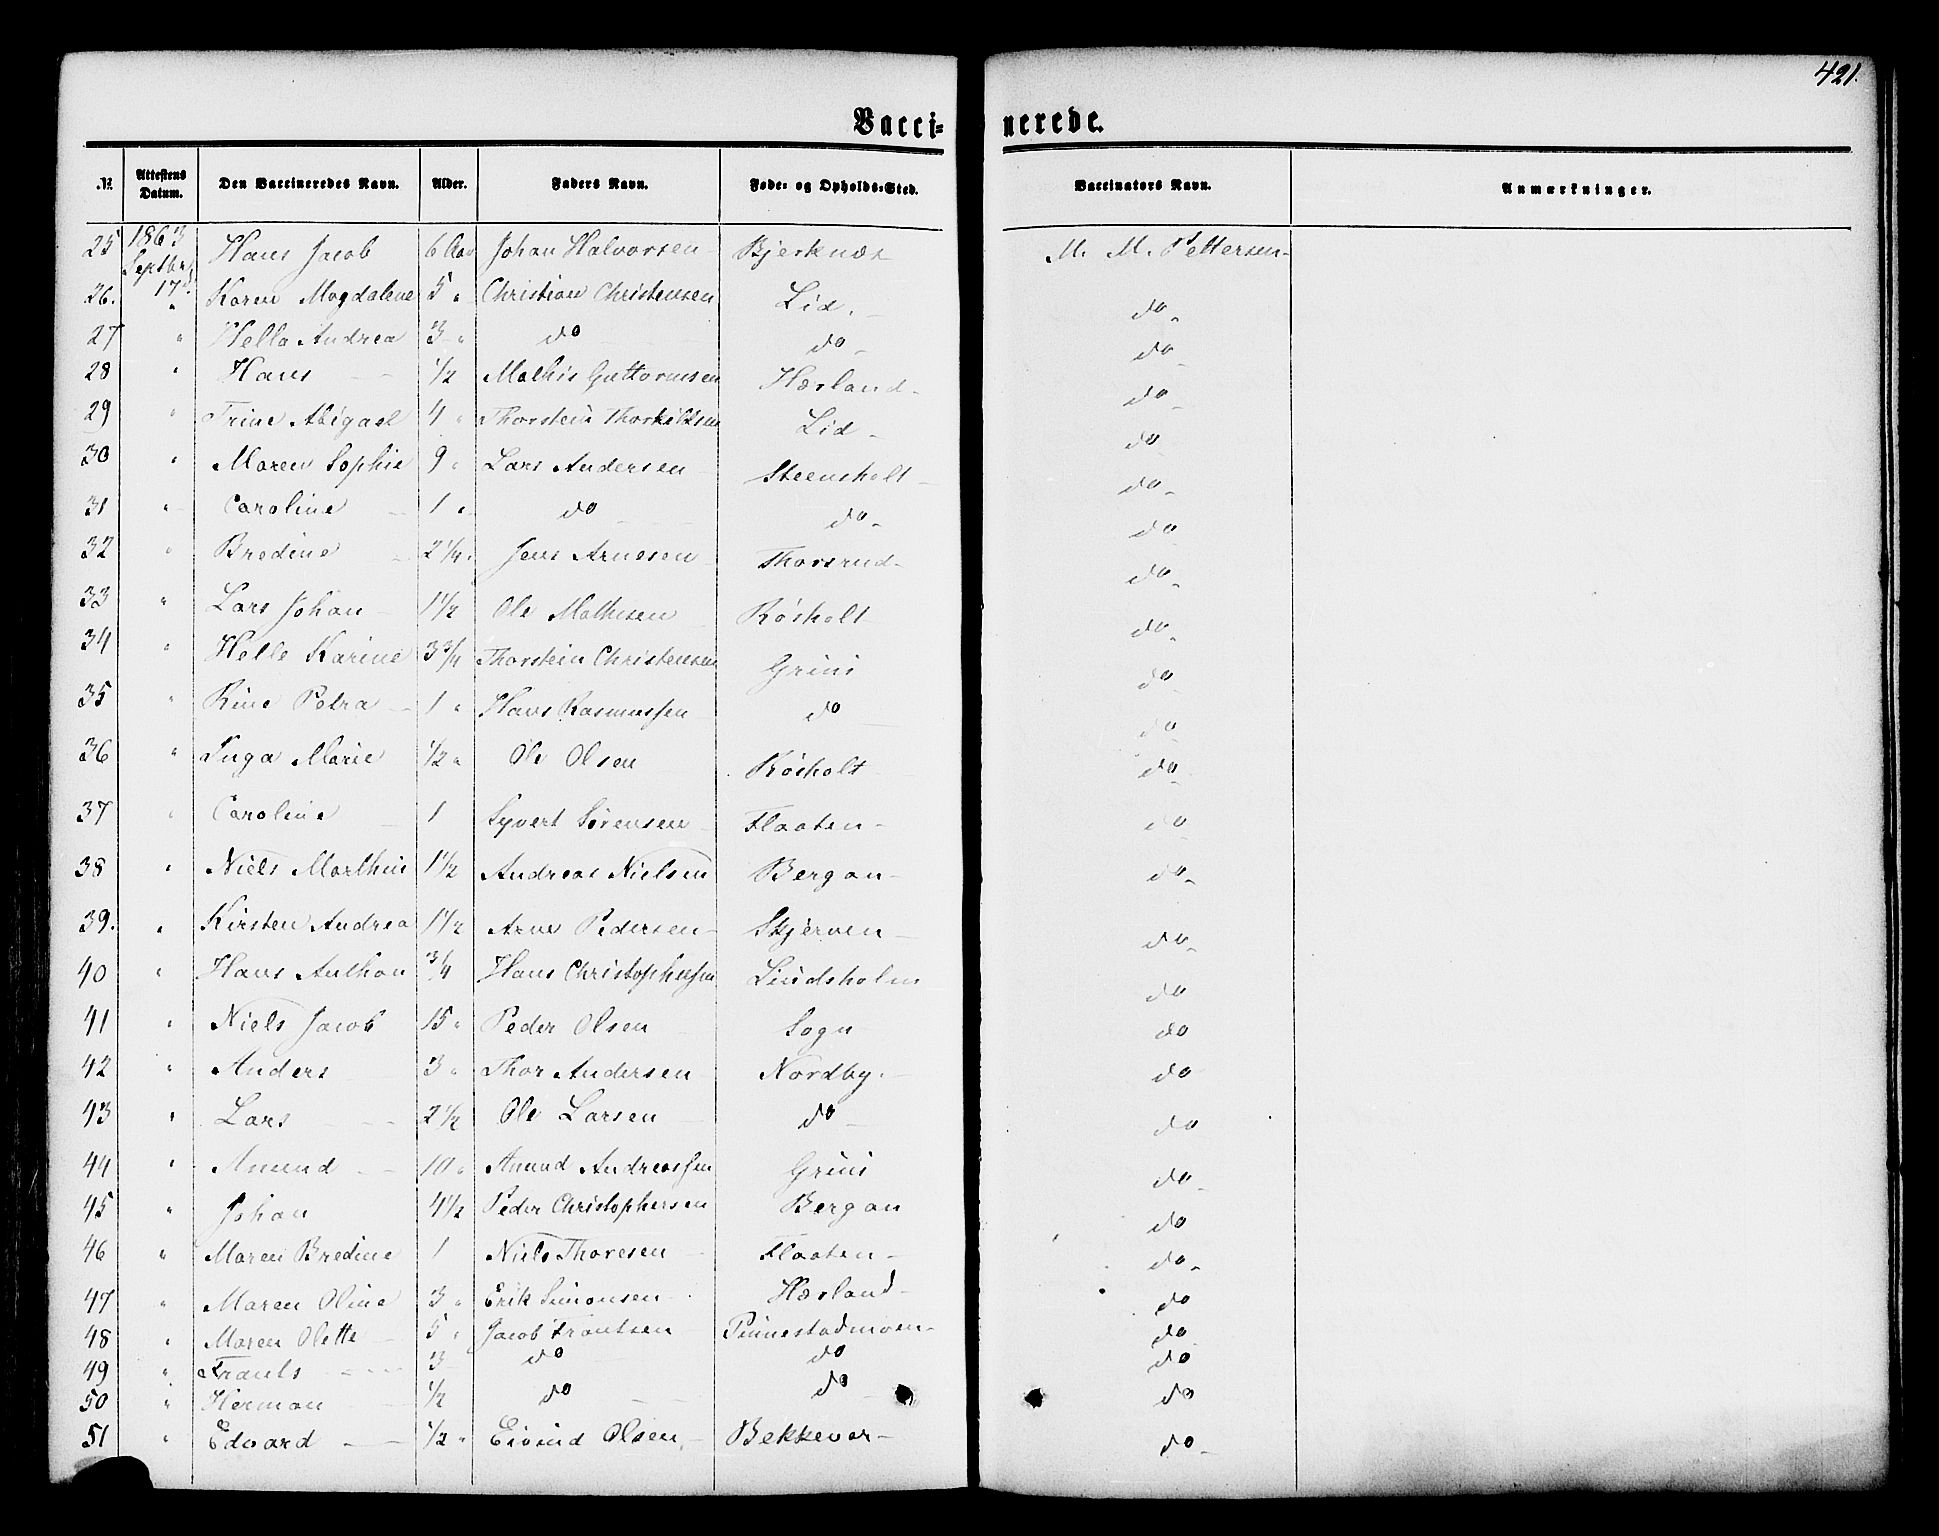 421.
Vacci- nerede.
№ Attestens Datum. Den Vaccineredes Navn. Alder. Faders Navn. Føde- og Opholds-Sted. Vaccinators Navn. Anmærkninger.
25 1863 Septbr 17d Hans Jacob 6 Aar Johan Halvorsen Bjerknæs M. M. Pettersen
26. " Karen Magdalene 5 " Christian Christensen Lid. do
27 " Hella Andrea 3 " do do do
28 " Hans 1/2 Mathis Guttormsen Hærland do
29 " Trine Abigael 4 " Thorstein Thorkildsen Lid do
30 " Maren Sophie 9 " Lars Andersen Steensholt do
31 " Caroline 1 " do do do
32 " Bredine 2 1/4 " Jens Arnesen Thorsrud do
33 " Lars Johan 1 1/2 Ole Mathisen Røsholt do
34 " Helle Karine 3 3/4 Thorstein Christensen Grini do
35 " Rine Petra 1 " Hans Rasmussen do do
36 " Inga Marie 1/2 " Ole Olsen Røsholt do
37 " Caroline 1 Syvert Sørensen Flaaten do
38 " Niels Marthin 1 1/2 Andreas Nielsen Bergan do
39. " Kirsten Andrea 1 1/2 Arne Pedersen Skjerven do
40 " Hans Anthon 3/4 Hans Christophersen Lindsholm do
41 " Niels Jacob 15 " Peder Olsen Sogn do
42 " Anders 3 " Thor Andersen Nordby. do
43 " Lars 2 1/2 Ole Larsen do do
44 " Amund 10 " Amund Andreassen Grini do
45 " Johan 4 1/2 Peder Christophersen Bergan do
46 " Maren Bredine 1 Niels Thoresen Flaaten do
47 " Maren Oline 3 " Erik Simonsen Hærland do
48 " Maren Olette 5 " Jacob Frantsen Pinnestadmoen do
49 " Frants 3 do do do
50 " Herman 1/2 do do do
51 " Edvard 1/2 " Eivind Olsen Bekkevar do